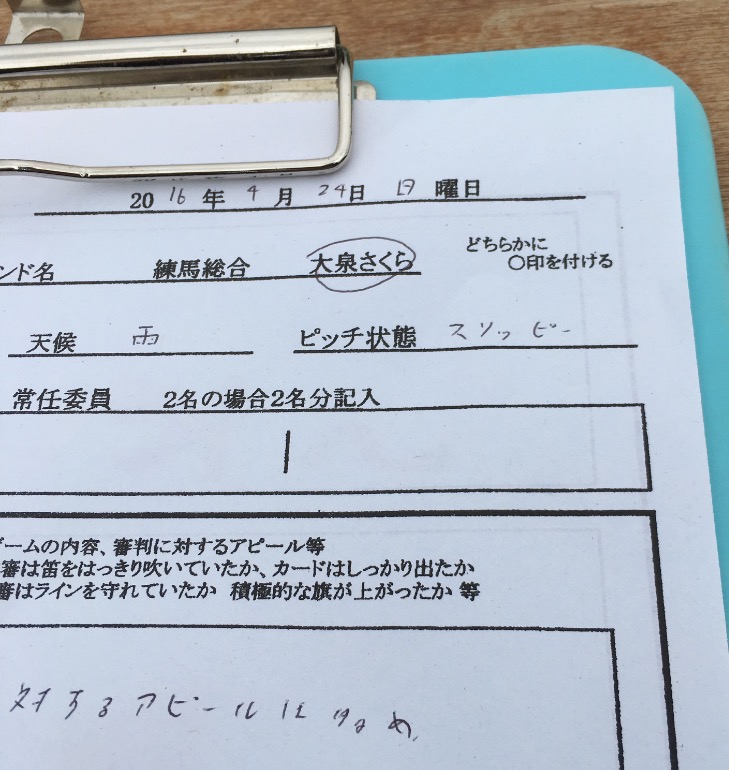 2016年 4月 24日 日 曜日
ンド名 練馬総合 大泉さくら どちらかに
〇印を付ける
天候 雨 ピッチ状態 スリッピー
常任委員 2名の場合2名分記入
ームの内容、審判に対するアピール等
審は笛をはっきり吹いていたか、カードはしっかり出たか
審はラインを守れていたか 積極的な旗が上がったか 等
対するアピールは